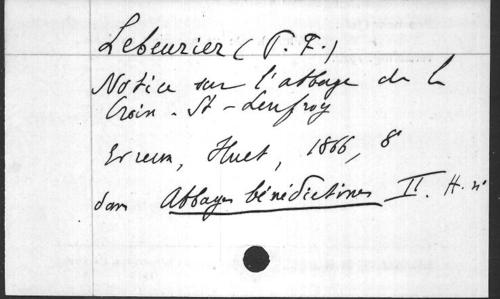 Lebeurier (P. F.)
Notice sur l'abbaye de la
Croix-St-Leufroy
Evreux, Huet, 1866, 8°
dans Abbayes bénédictines II. H. n°